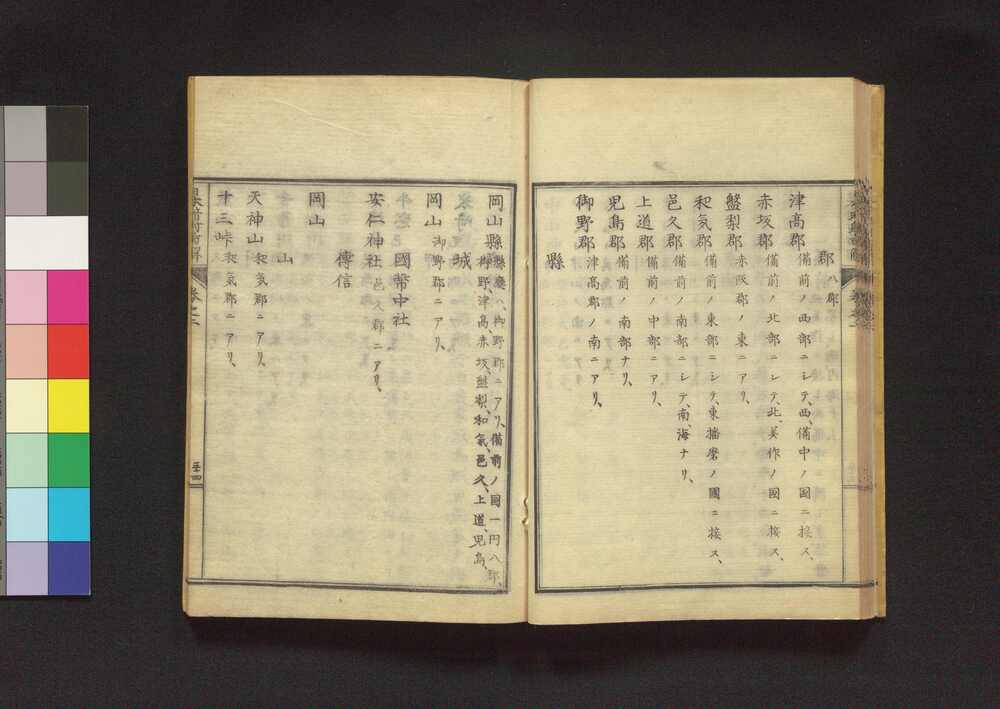 郡 八郡
津高郡 備前ノ西部ニシテ、西、備中ノ国ニ接ス、
赤坂郡 備前ノ北部ニシテ、北、美作ノ国ニ接ス、
盤梨郡 赤阪郡ノ東ニアリ、
和気郡 備前ノ東部ニシテ、東播磨ノ國ニ接ス、
邑久郡 備前ノ南部ニシテ、南、海ナリ、
上道郡 備前ノ中部ニアリ、
児島郡 備前ノ南部ナリ、
御野郡 津高郡ノ南ニアリ、
縣
岡山縣 縣廳ハ、御野郡ニアリ、備前ノ国一円八郡、
御野、津高、赤坂、盤梨、和氣、邑久、上道、児島、
城
岡山 御野郡ニアリ、
國幣中社
安仁神社 邑久郡ニアリ、
傳信
岡山
山
天神山 和氣郡ニアリ、
十三峠 和氣郡ニアリ、
巻之二
三十四